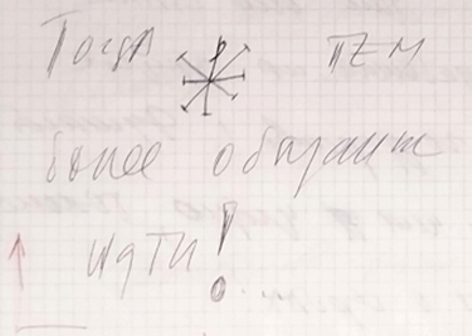 Тогда тем
более обязаны
идти!